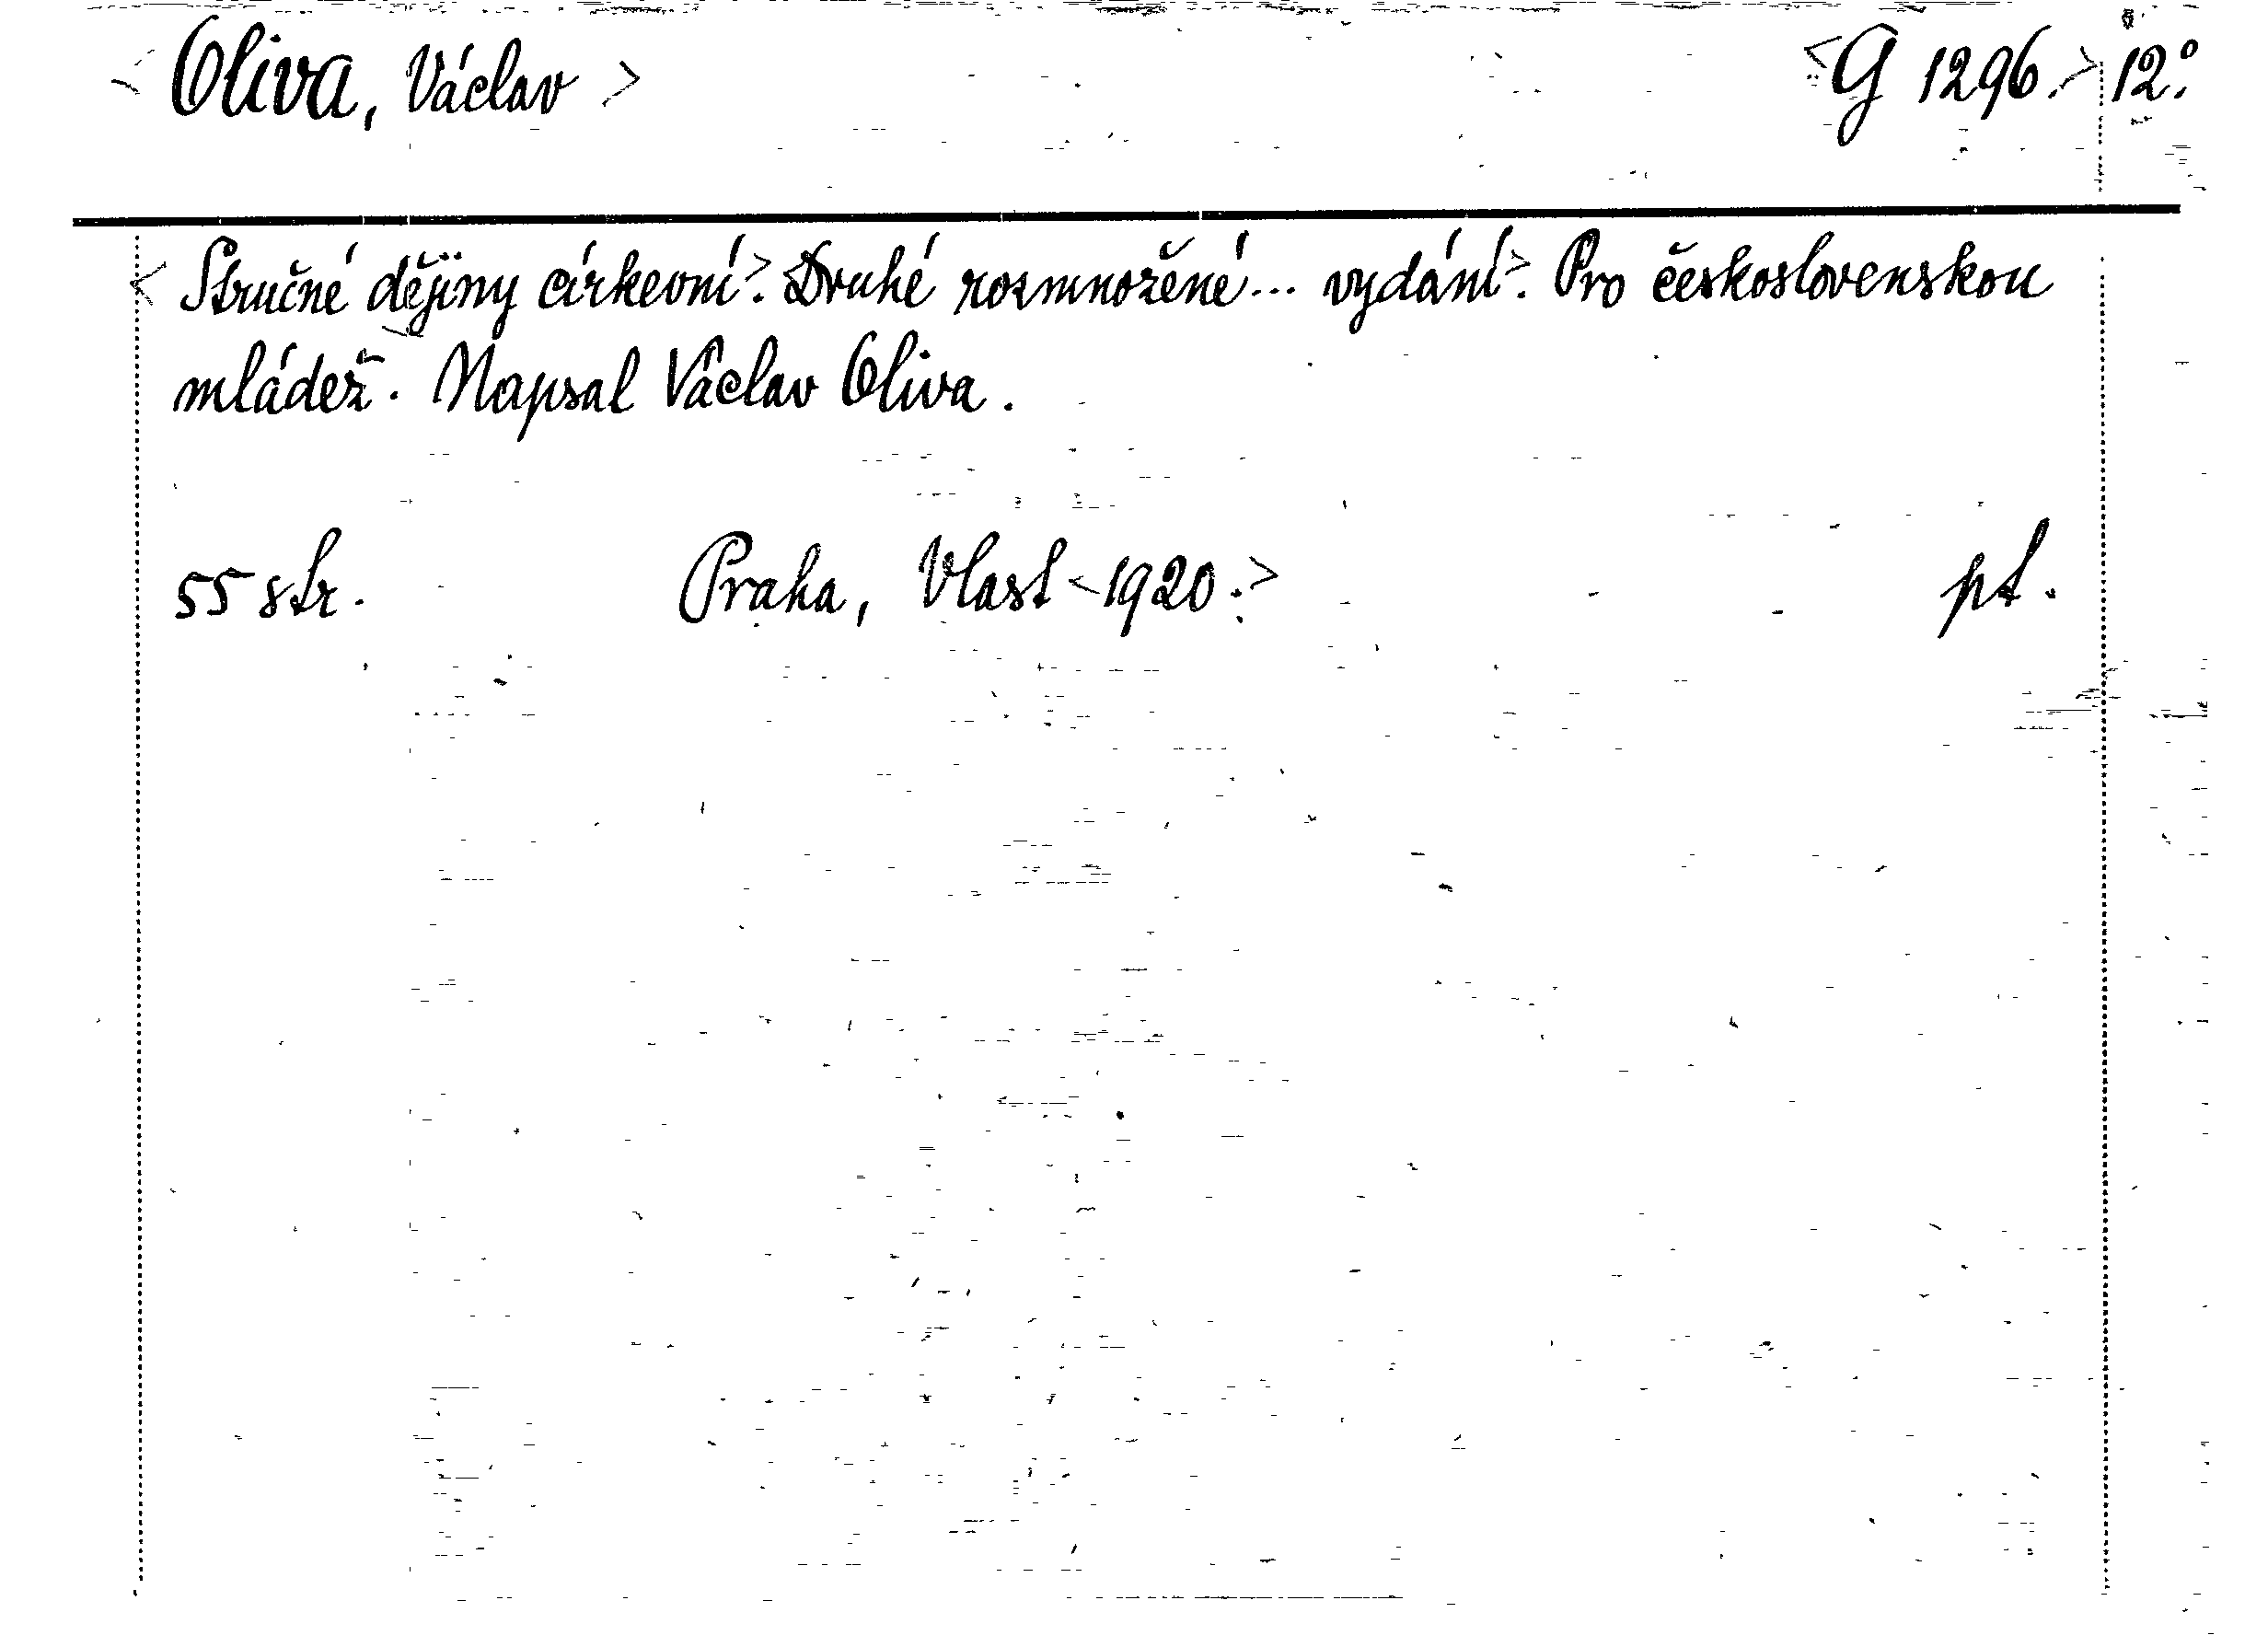 < Oliva, Václav > <G 1296.> 12°.
< Stručné dějiny církevní>. Druhé rozmnožené... vydání>. Pro československou
mládež. Napsal Václav Oliva.
55 str. Praha, Vlast <1920.> pt.